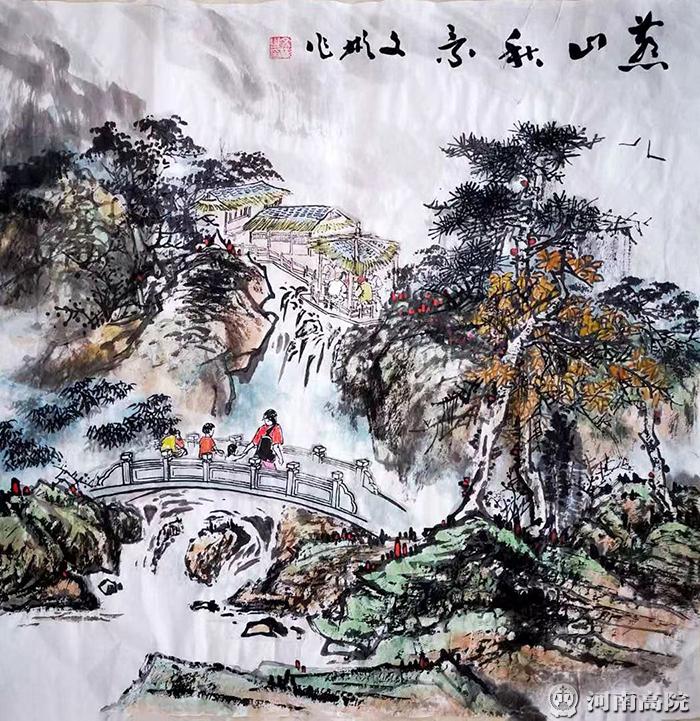 燕山秋景 文彬作
河南高院